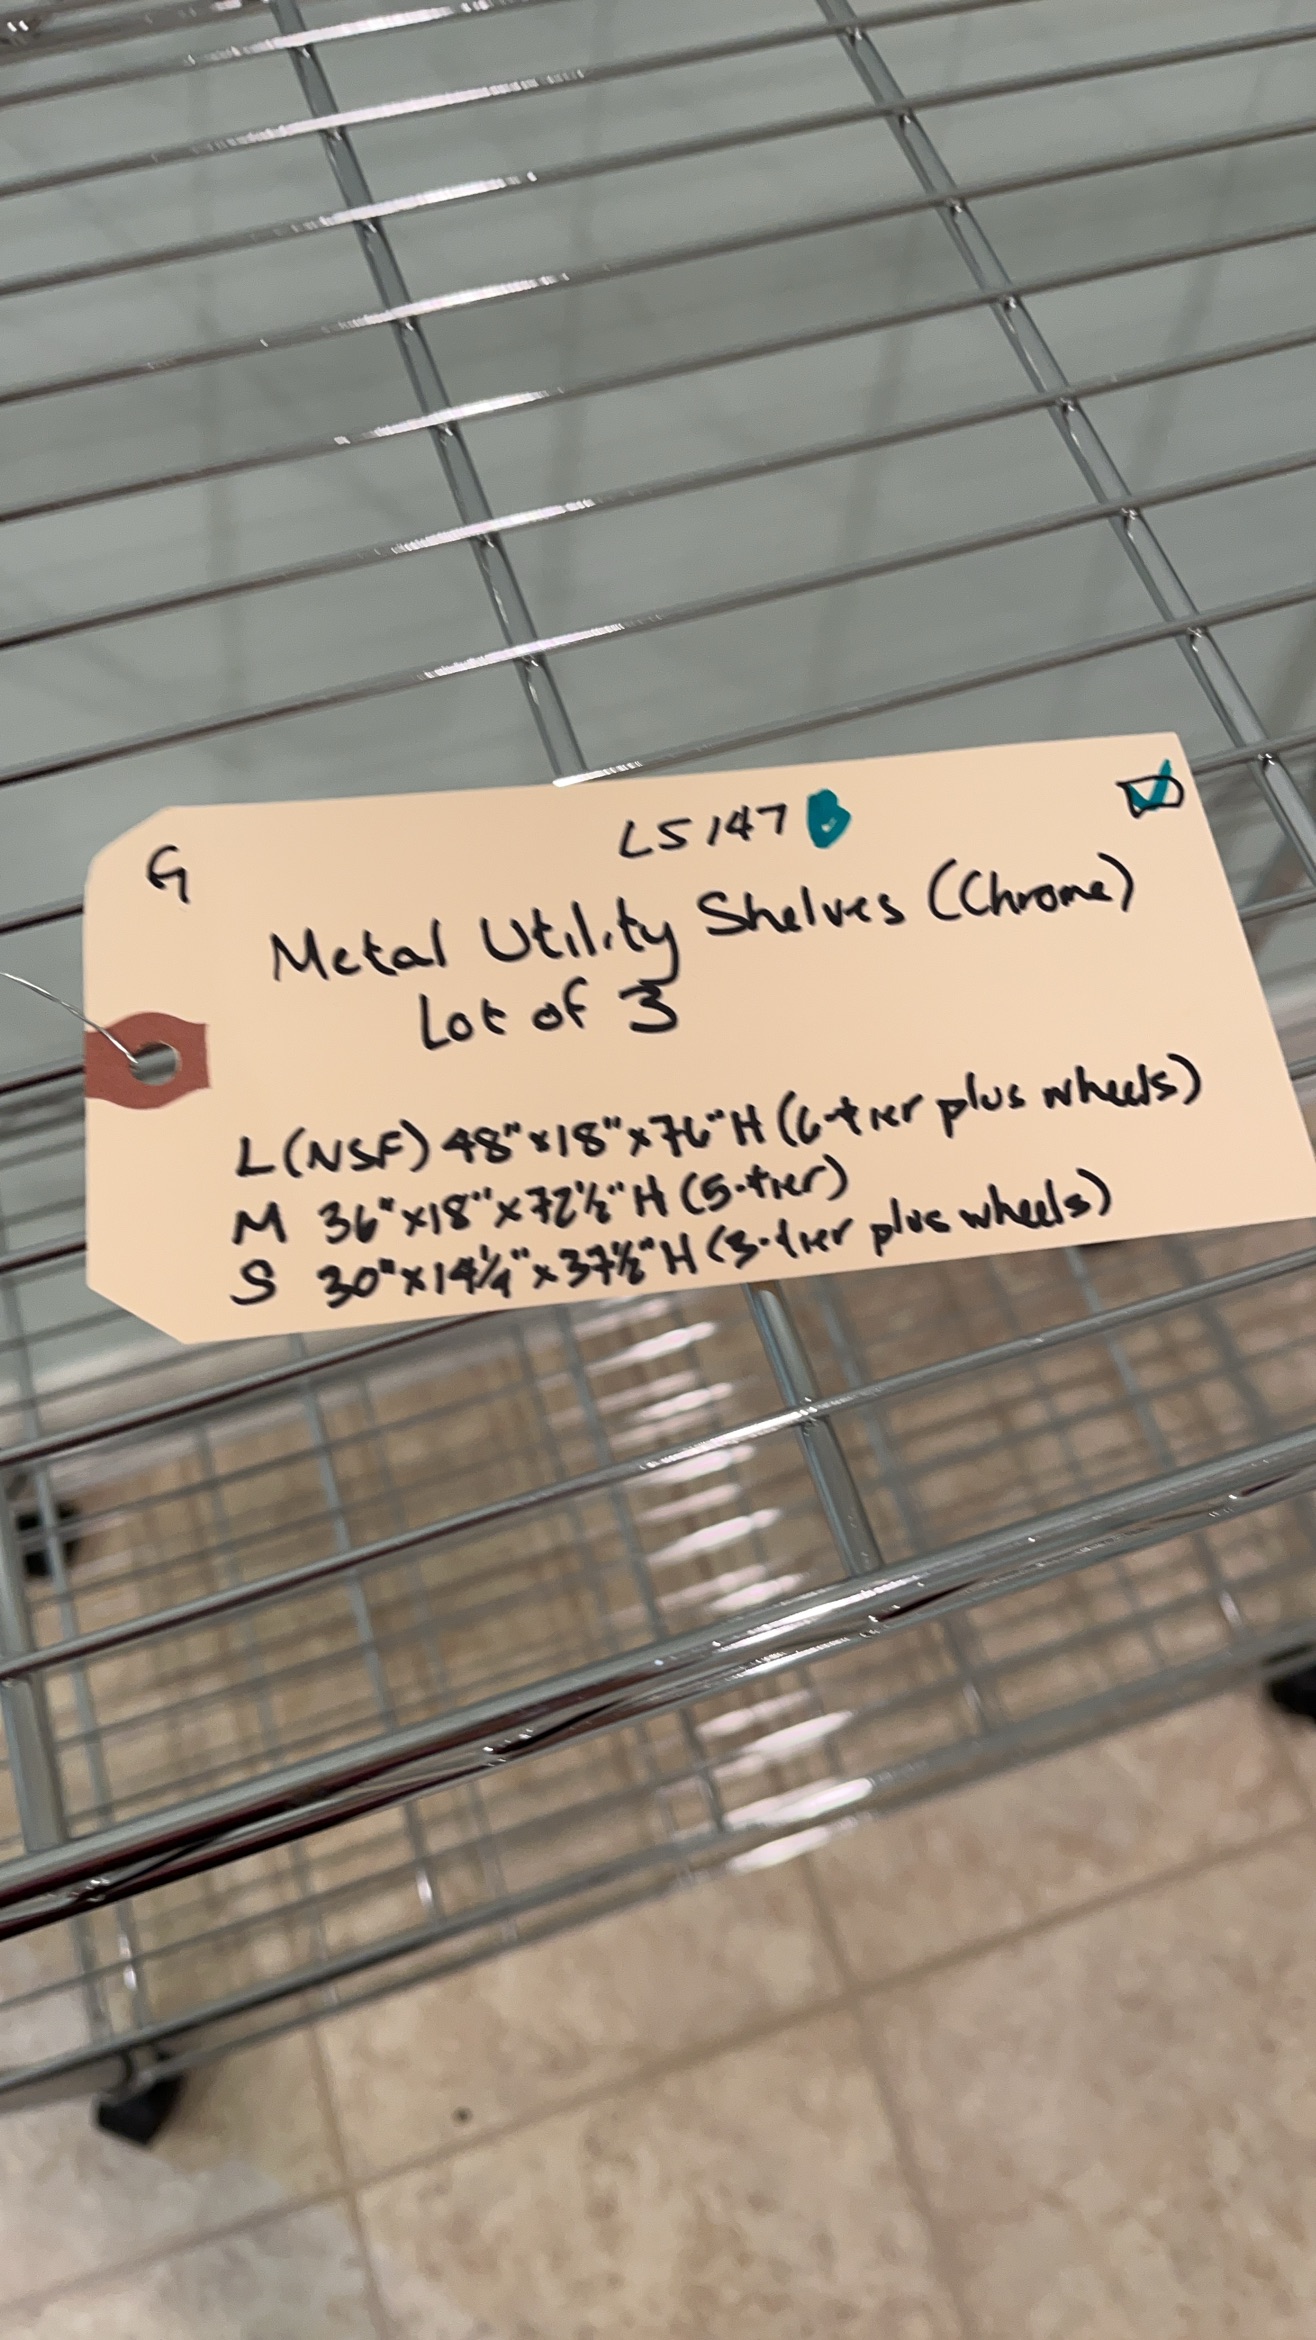 G
LS147 B
Metal Utility Shelves (Chrome)
Lot of 3
L (NSF) 48"x18"x76"H (6-tier plus wheels)
M 36"x18"x72½"H (5-tier)
S 30"x14¼"x37½"H (3-tier plus wheels)